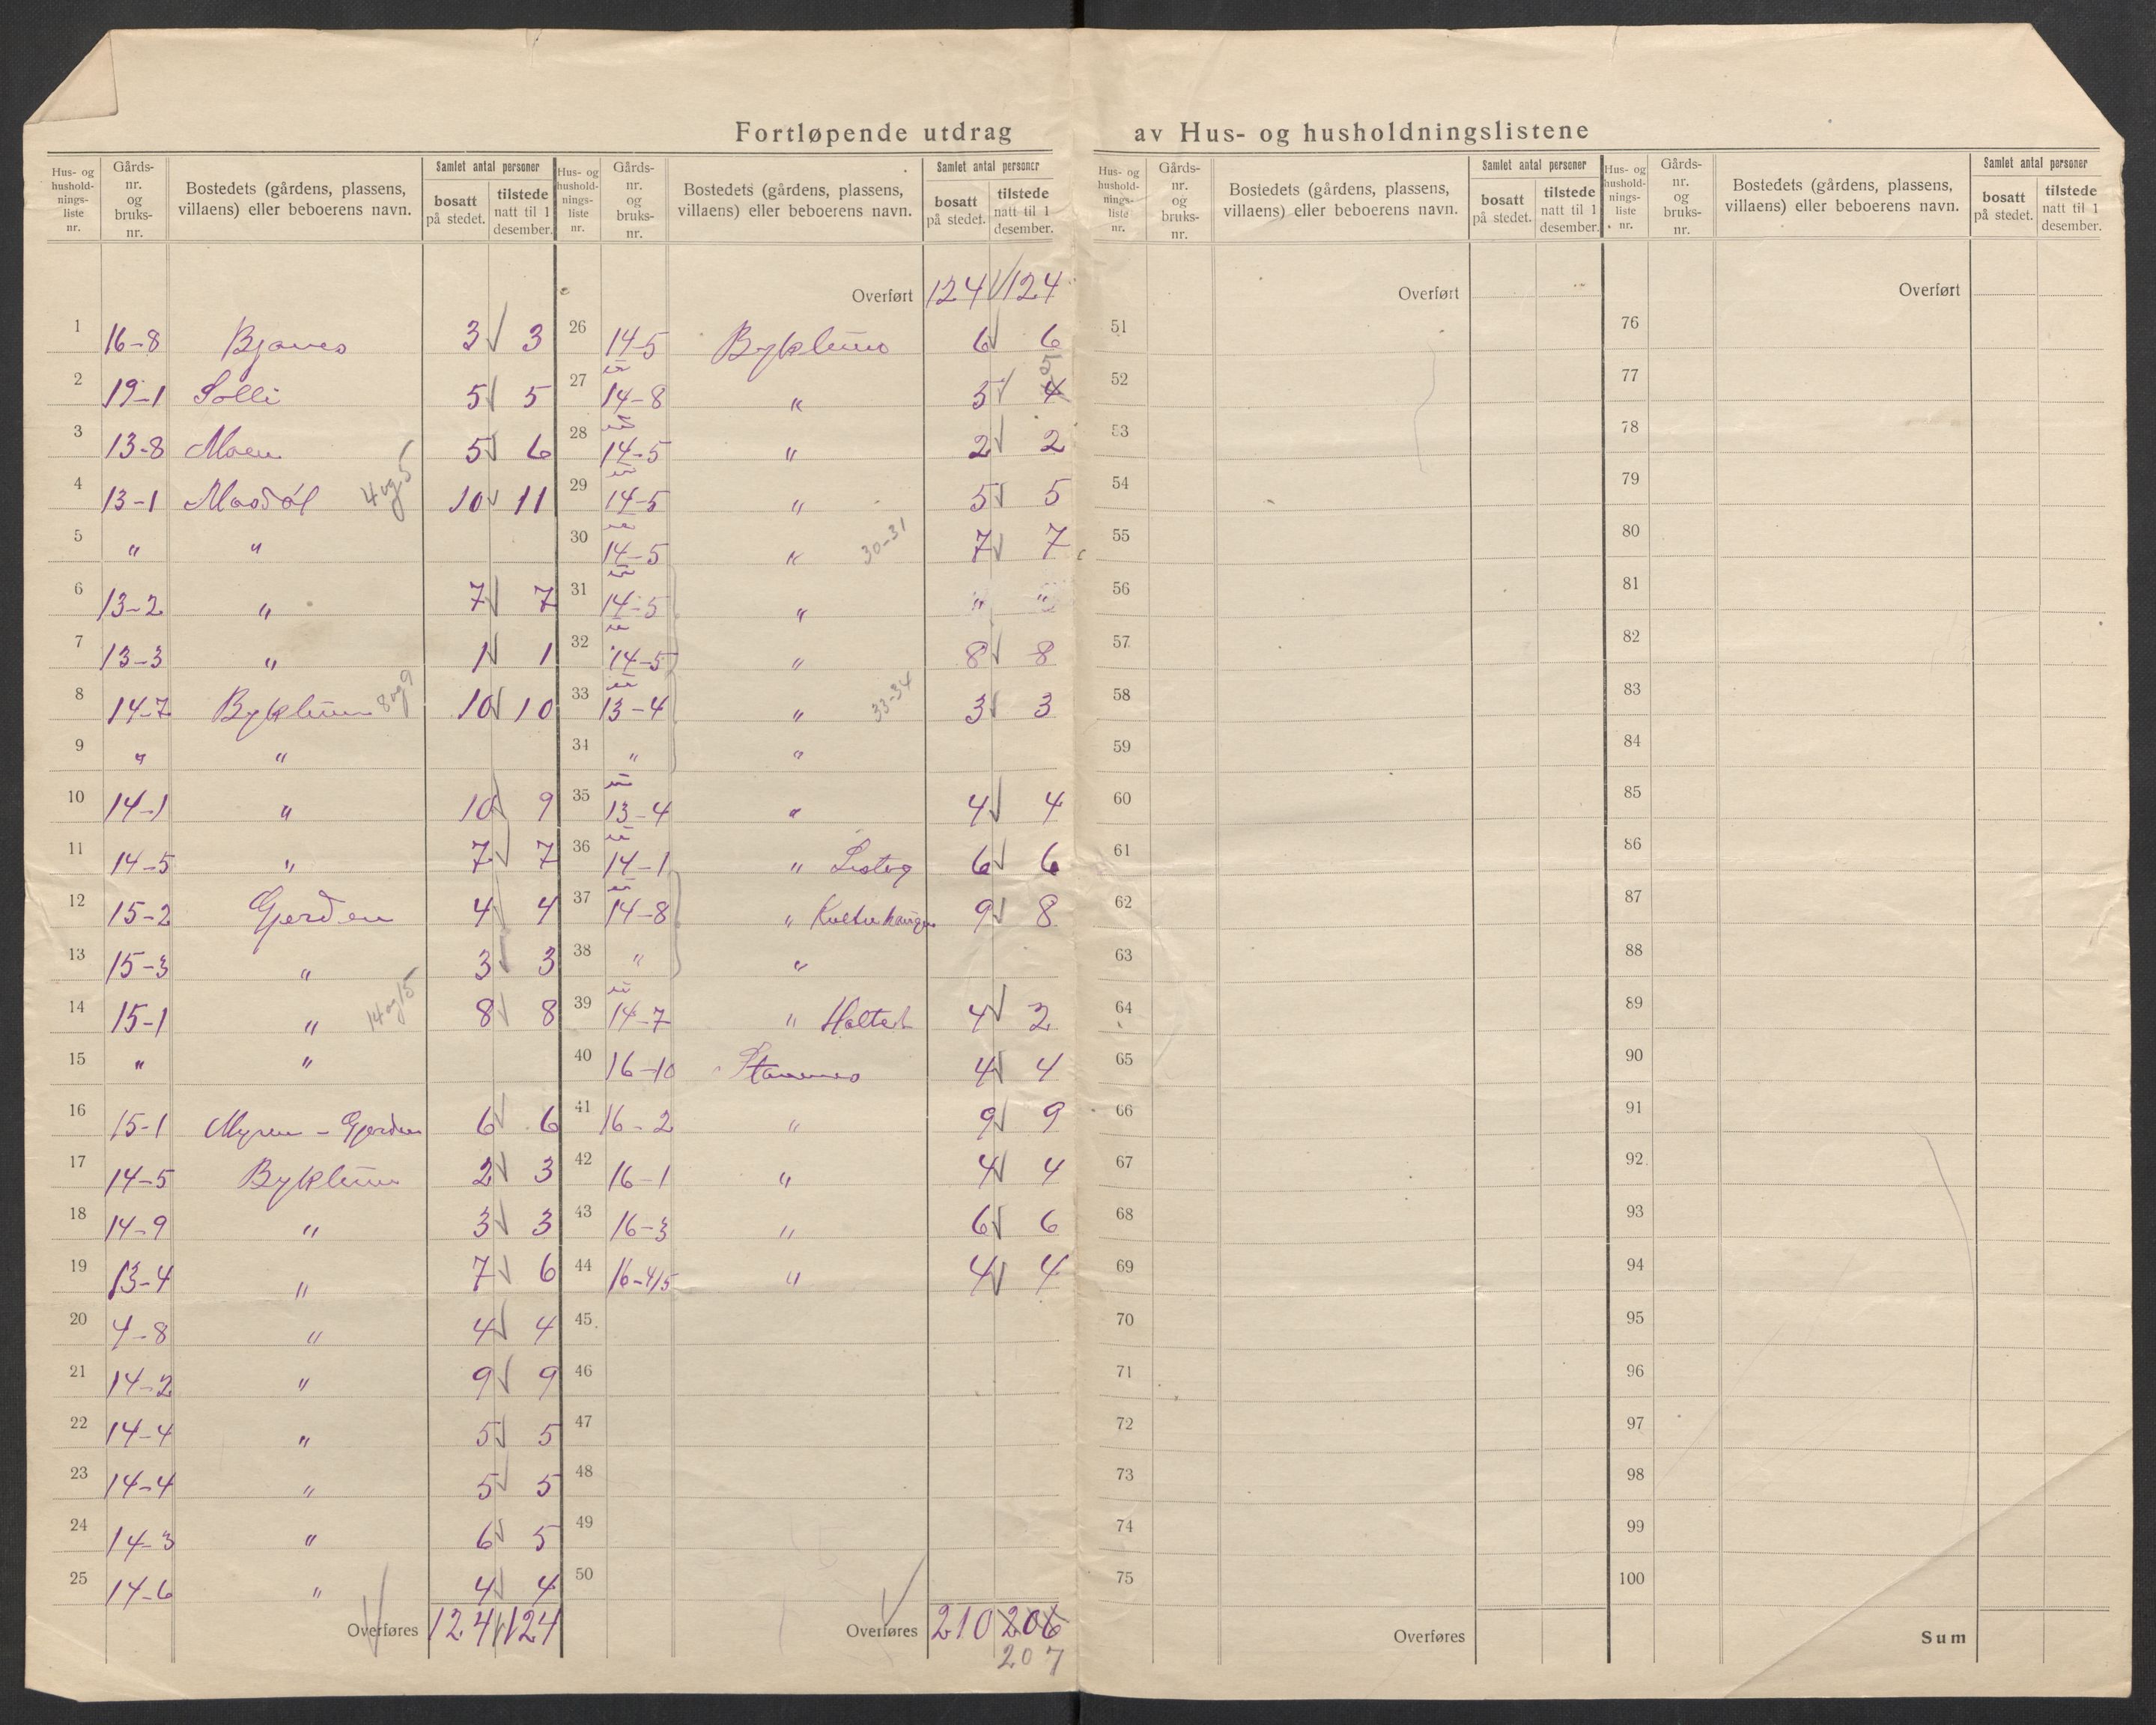 Fortløpende utdrag av Hus- og husholdningslistene
Hus- og hushold-nings-liste nr. Gårds-nr. og bruks-nr. Bostedets (gårdens, plassens, villaens) eller beboerens navn. Samlet antal personer bosatt på stedet. tilstede natt til 1 desember.
1 16-8 3 3
2 19-1 Solli 5 5
3 13-8 Moen 5 6
4 13-1 4 og 5 10 11
5 " "
6 13-2 " 7 7
7 13-3 " 1 1
8 14-7 Byklum 8 og 9 10 10
9 " "
10 14-1 " 10 9
11 14-5 " 7 7
12 15-2 Gjerden 4 4
13 15-3 " 3 3
14 15-1 " 14 og 15 8 8
15 " "
16 15-1 Myren - Gjerden 6 6
17 14-5 Byklum 2 3
18 14-9 " 3 3
19 13-4 " 7 6
20 4-8 " 4 4
21 14-2 " 9 9
22 14-4 " 5 5
23 14-4 " 5 5
24 14-3 " 6 5
25 14-6 " 4 4
Overføres 124 124
Hus- og hushold-nings-liste nr. Gårds-nr. og bruks-nr. Bostedets (gårdens, plassens, villaens) eller beboerens navn. Samlet antal personer bosatt på stedet. tilstede natt til 1 desember.
Overført 124 124
26 14-5 Byklum 6 6
27 14-8 " 5 4 5
28 14-5 " 2 2
29 14-5 " 5 5
30 14-5 " 30-31 7 7
31 14-5 " " "
32 14-5 " 8 8
33 13-4 " 33-34 3 3
34 " "
35 13-4 " 4 4
36 14-1 " 6 6
37 14-8 " 9 8
38 " "
39 14-7 " 4 2
40 16-10 4 4
41 16-2 " 9 9
42 16-1 " 4 4
43 16-3 " 6 6
44 16-4/5 " 4 4
45
46
47
48
49
50
Overføres 210 206
207
Hus- og hushold-nings-liste nr. Gårds-nr. og bruks-nr. Bostedets (gårdens, plassens, villaens) eller beboerens navn. Samlet antal personer bosatt på stedet. tilstede natt til 1 desember.
Overført
51
52
53
54
55
56
57
58
59
60
61
62
63
64
65
66
67
68
69
70
71
72
73
74
75
Overføres
Hus- og hushold-nings-liste nr. Gårds-nr. og bruks-nr. Bostedets (gårdens, plassens, villaens) eller beboerens navn. Samlet antal personer bosatt på stedet. tilstede natt til 1 desember.
Overført
76
77
78
79
80
81
82
83
84
85
86
87
88
89
90
91
92
93
94
95
96
97
98
99
100
Sum